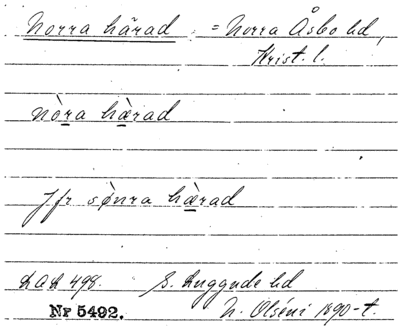 Norra härad = Norra Åsbo hd,
Krist. l.
nò̱ra hæ̱̀rad
Jfr sø̀nra hæ̱̀rad
LAL 498. S. Luggude hd
Nr 5492. N. Olséni 1890-t.